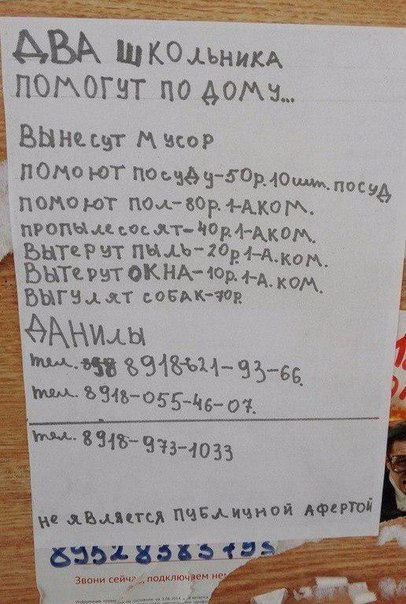 ДВА ШКОЛЬНИКА
ПОМОГУТ ПО ДОМУ...
ВЫНЕСУТ МУСОР
ПОМОЮТ ПОСУДУ-50р. 10шт. ПОСУД
ПОМОЮТ ПОЛ-80р. 1-А КОМ.
ПРОПЫЛЕСОСЯТ-40р. 1-А КОМ.
ВЫТЕРУТ ПЫЛЬ-20р. 1-А. КОМ.
ВЫТЕРУТ ОКНА-10р. 1-А. КОМ.
ВЫГУЛЯТ СОБАК-70Р.
ДАНИЛЫ
тел. 8918-621-93-66.
тел. 8918-055-46-07.
тел. 8918-973-1033
НЕ ЯВЛЯЕТСЯ ПУБЛИЧНОЙ АФЕРТОЙ
Звони подключаем